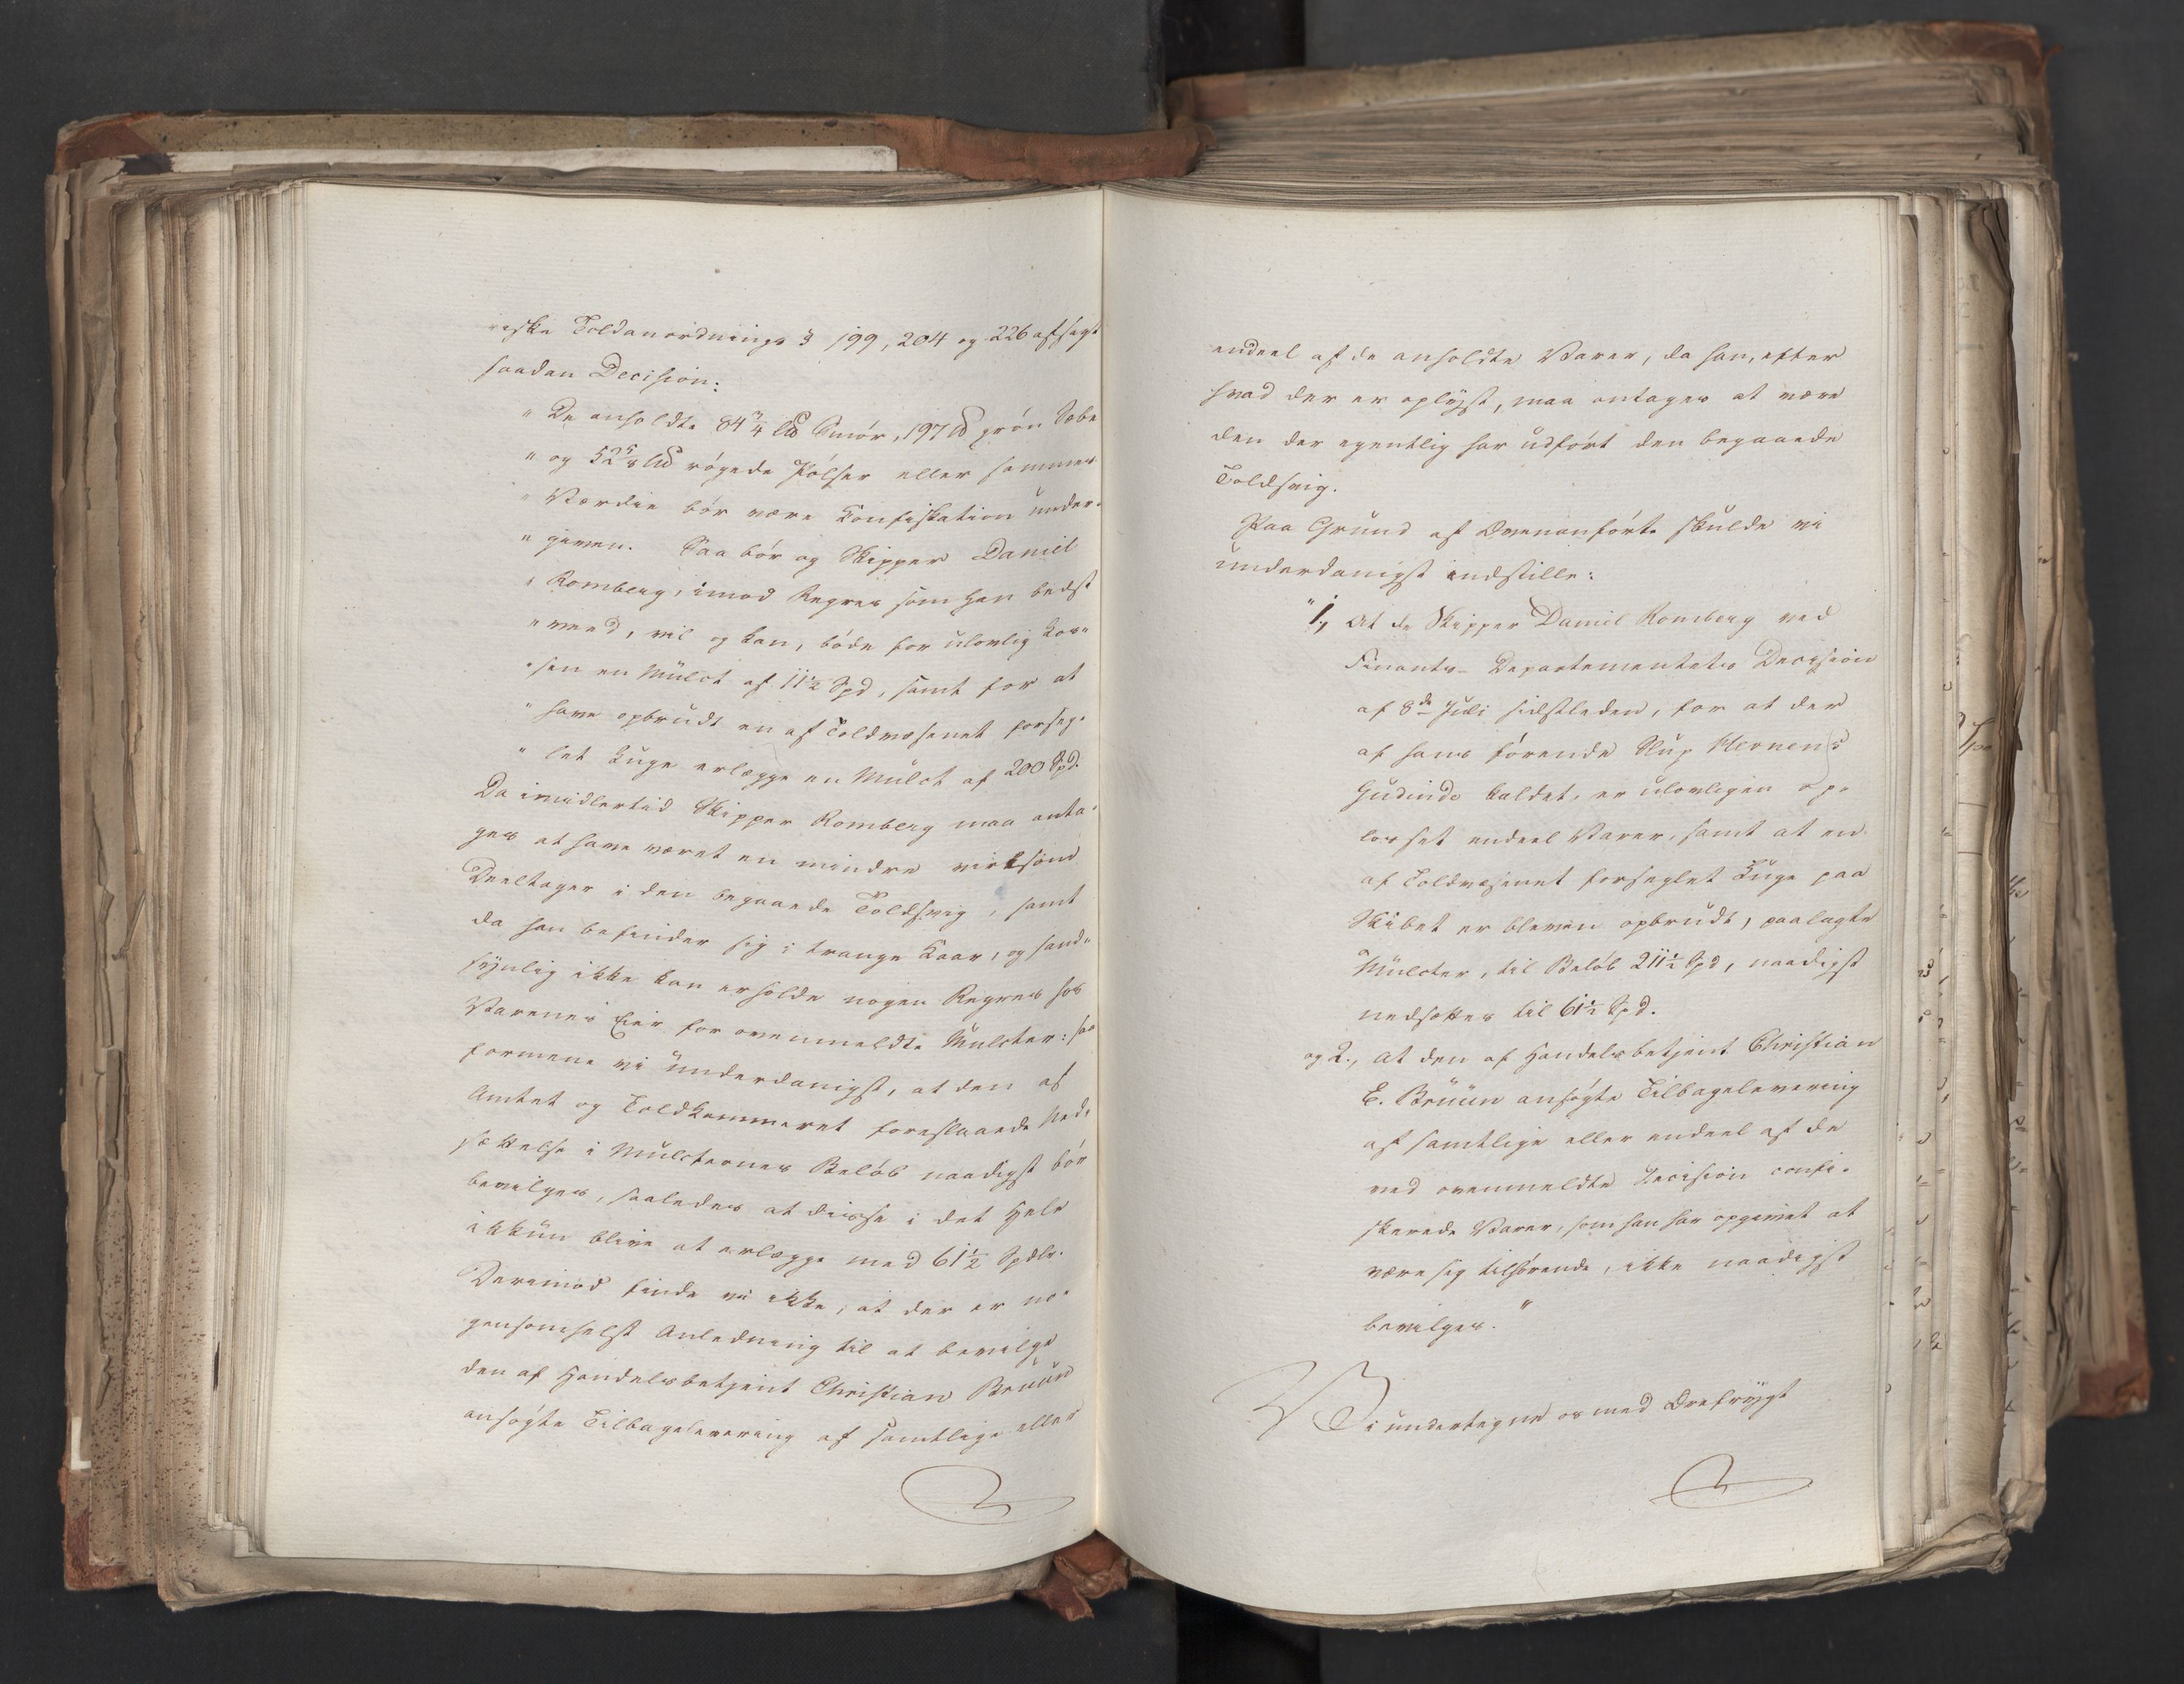 riske Toldanordnings § 199, 204 og 226 afsagt
saadan Decision:
" De anholdte 84 3/4 L℔ Smör, 197 ℔ grön Sæbe
" og 52 5/8 L℔ rögede Pölser eller sammes
" Værdie bör være Confiskation under-
" given. Saa bör og Skipper Daniel
" Romberg, imod Regres som han bedst
" veed, vil og kan, böde for ulovlig Los-
" sen en Mülct af 11 1/2 Spd, samt for at
" have opbrudt en af Toldvæsenet forseg-
" let Luge erlægge en Mülct af 200 Spd.
Da imidlertid Skipper Romberg maa anta-
ges at have været en mindre virksom
Deeltager i den begaaede Toldsvig, samt
da han befinder sig i trange Kaar, og sand-
synlig ikke kan erholde nogen Regres hos
Varenes Eier for ovenmeldte Mulcter: saa
formene vi ünderdanigst, at den af
Amtet og Toldkammeret foreslaaede Ned-
sættelse i Mülcternes Belöb naadigst bör
bevilges, saaledes at disse i det Hele
ikkün blive at erlægge med 61 1/2 Spdlr.
Derimod finde vi ikke, at der er no-
gensomhelst Anledning til at bevilge
den af Handelsbetjent Christian Brüün
ansögte Tilbagelevering af samtlige eller
endeel af de anholdte Varer, da han, efter
hvad der er oplyst, maa antages at være
den der egentlig har üdfört den begaaede
Toldsvig.
Paa Grund af Ovenanförte skulde vi
ünderdanigst indstille:
" 1, At de Skipper Daniel Romberg ved
Finants-Departementets Decision
af 8de Juli sidstleden, for at der
af hans förende Slup Havnens
Gudinde kaldet, er ulovligen op-
losset endeel Varer, samt at en
af Toldvæsenet forseglet Luge paa
Skibet er bleven opbrudt, paalagte
Mülcter, til Belöb 211 1/2 Spd, naadigst
nedsættes til 61 1/2 Spd.
og 2., at den af Handelsbetjent Christian
E. Brüün ansögte Tilbagelevering
af samtlige eller endeel af de
ved ovenmeldte Decision confi-
skerede Varer, som han har opgivet at
være sig tilhörende, ikke naadigst
bevilges. "
Vi undertegne os med Ærefrygt